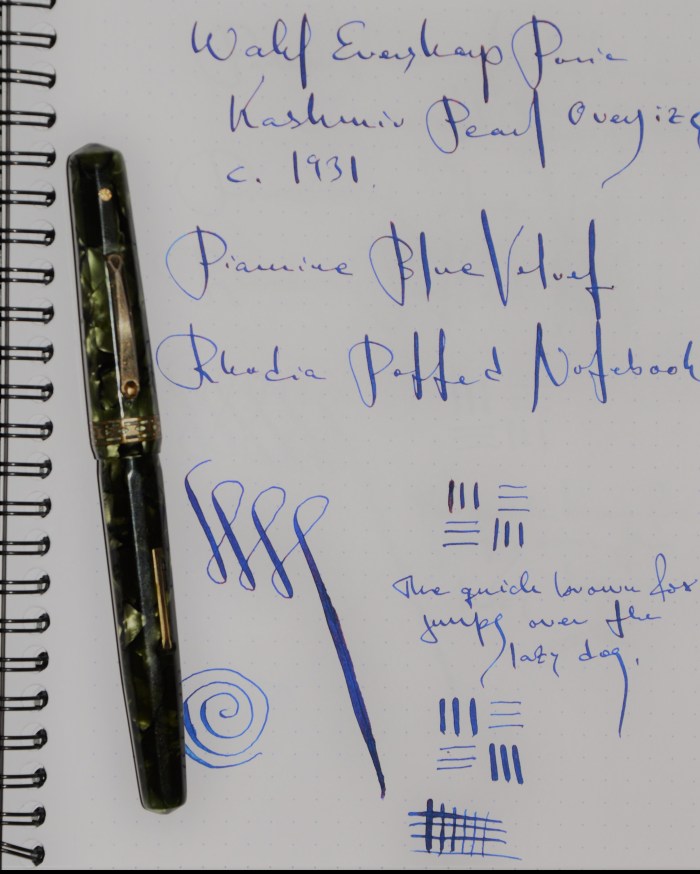 Wahl Eversharp Doric
Kashmir Pearl Oversiz
c. 1931.
Diamine Blue Velvet
Rhodia Dotted Notebook
The quick brown fox
jumps over the
lazy dog.